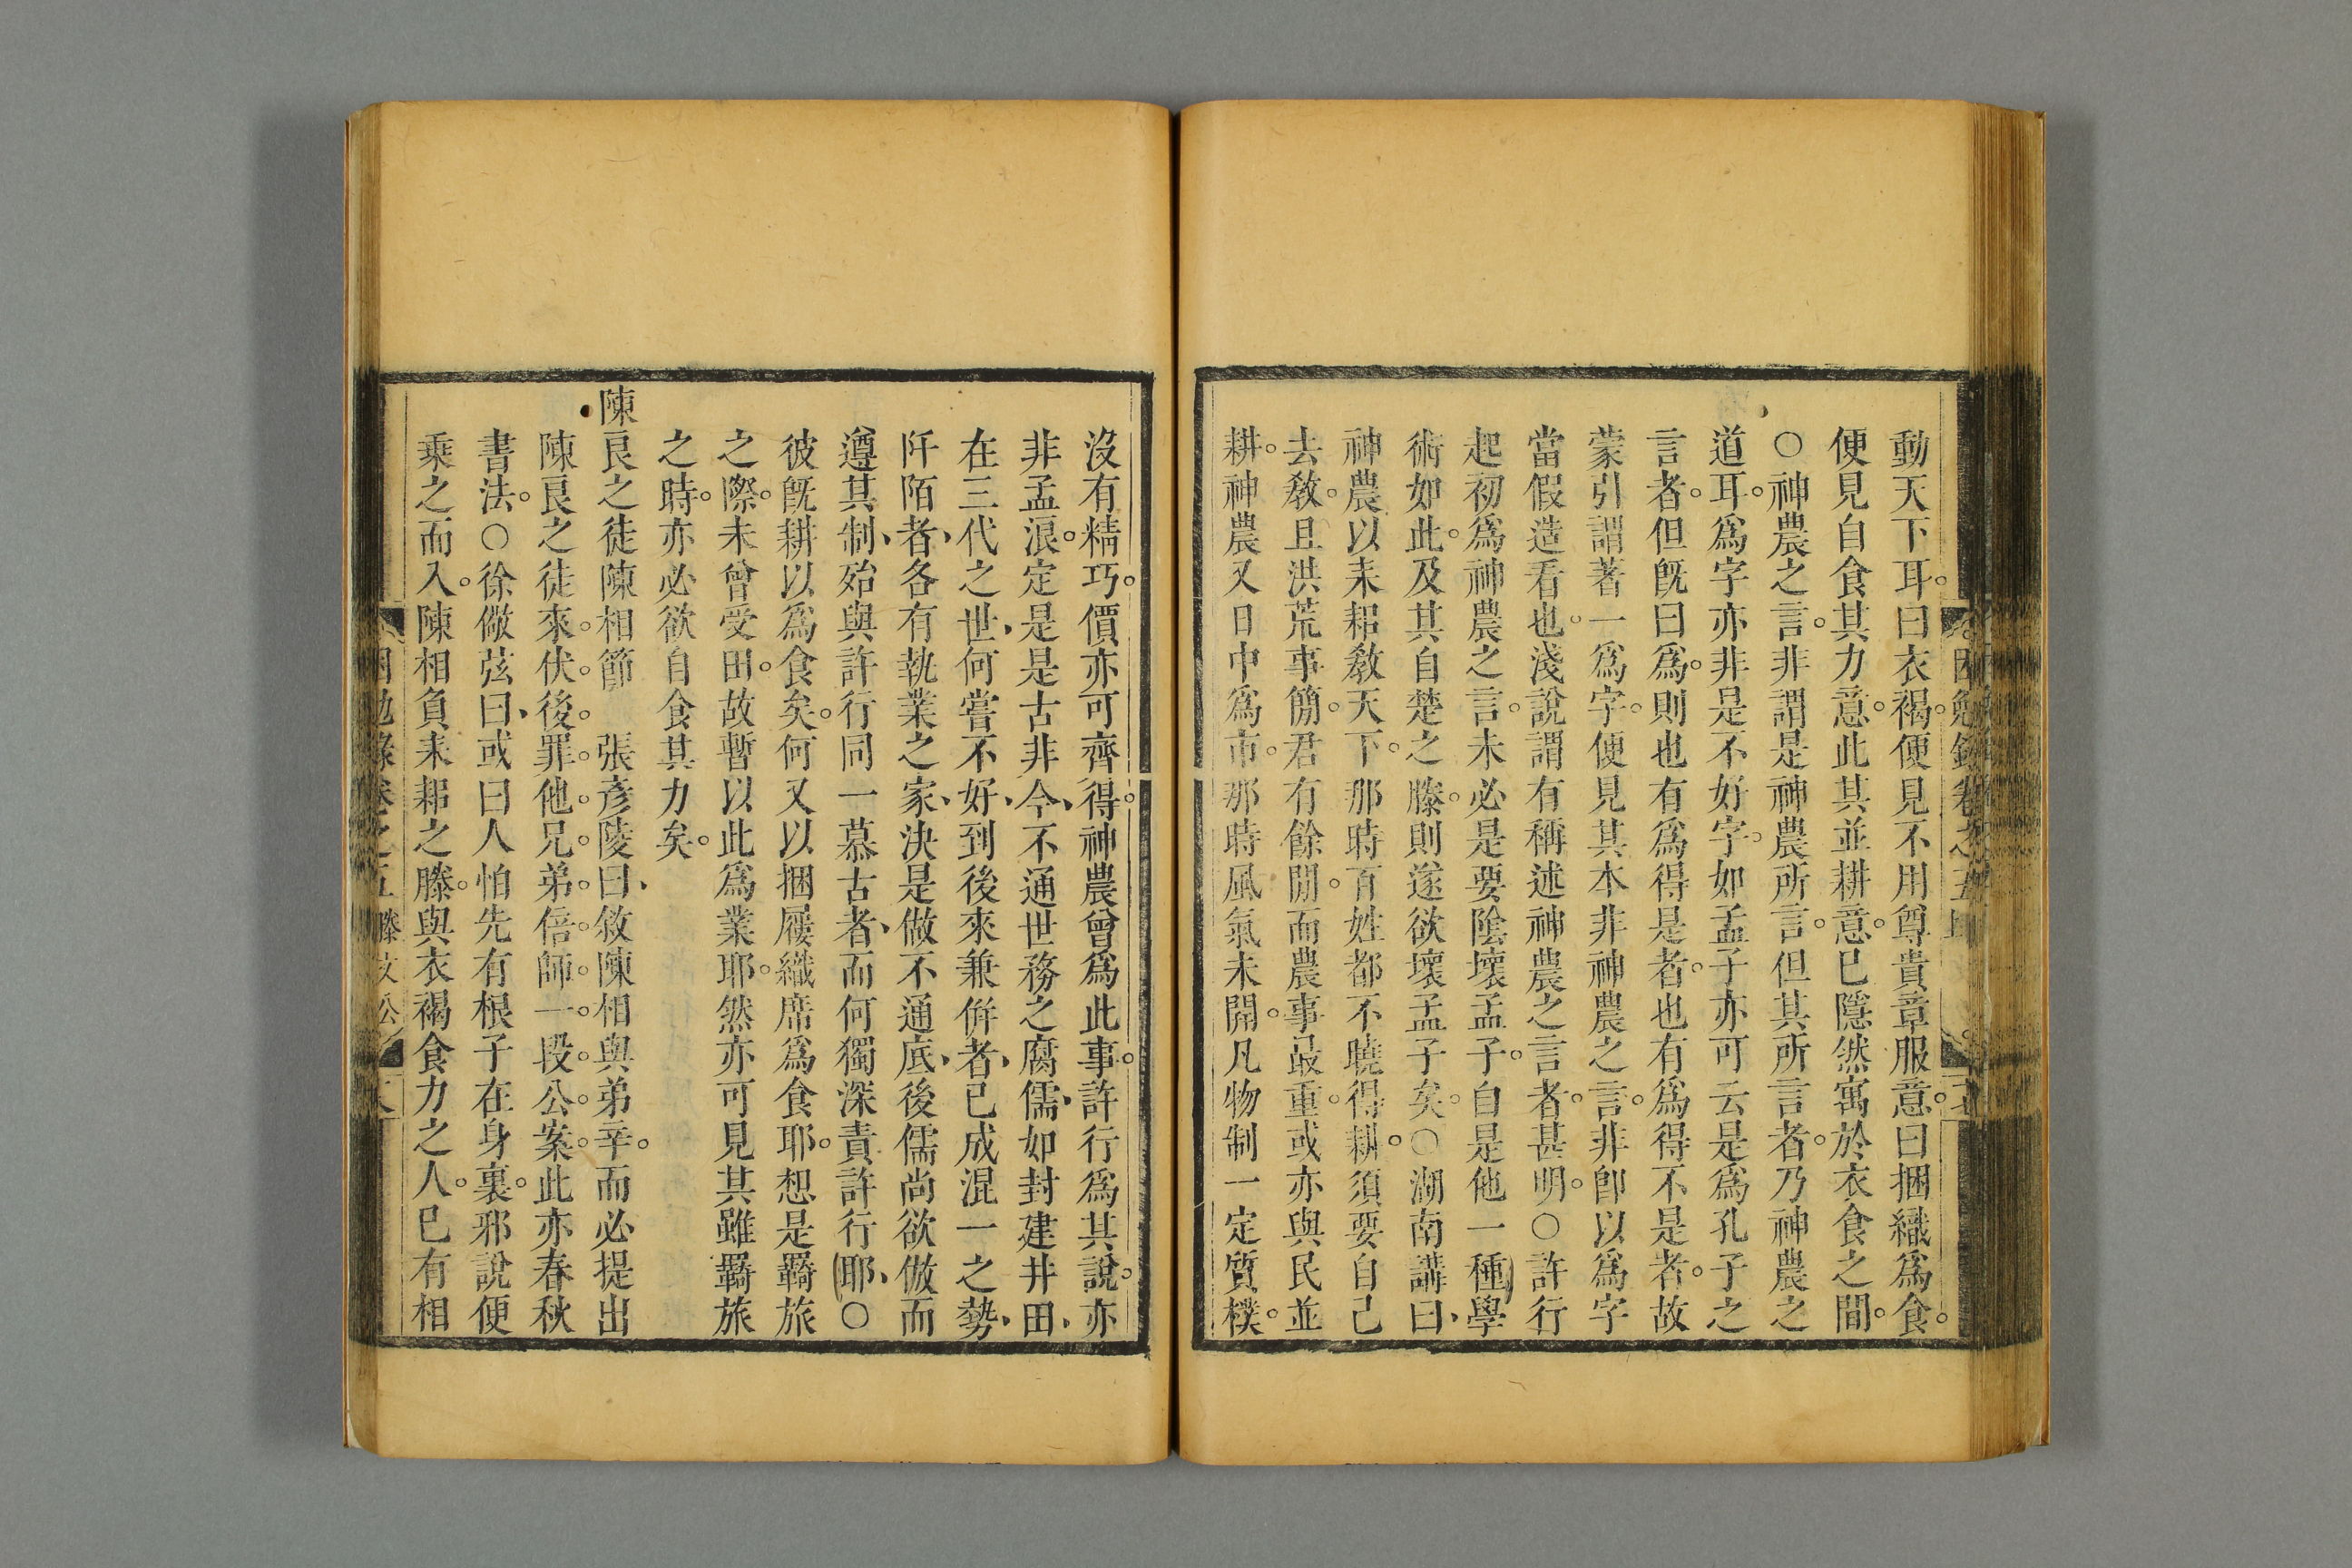 動天下耳。曰衣褐。便見不用尊貴章服意。曰捆織爲食。
便見自食其力意。此其並耕意。已隱然寓於衣食之間。
○神農之言。非謂是神農所言。但其所言者。乃神農之
道耳。爲字亦非是不好字。如孟子亦可云是爲孔子之
言者。但旣曰爲。則也有爲得是者。也有爲得不是者。故
蒙引謂著一爲字。便見其本非神農之言。非卽以爲字
當假造看也。淺說謂有稱述神農之言者。甚明。○許行
起初爲神農之言。未必是要陰壞孟子。自是他一種學
術如此。及其自楚之滕。則遂欲壞孟子矣。○湖南講曰、
神農以耒耜敎天下。那時百姓都不曉得耕。須要自己
去敎。且洪荒事簡。君有餘閒。而農事最重。或亦與民並
耕。神農又日中爲市。那時風氣未開。凡物制一定質樸。
沒有精巧。價亦可齊得。神農曾爲此事。許行爲其說。亦
非孟浪。定是是古非今、不通世務之腐儒、如封建井田、
在三代之世、何嘗不好、到後來兼併者、已成混一之勢、
阡陌者、各有執業之家、決是做不通底、後儒尚欲倣而
遵其制、殆與許行同一慕古者、而何獨深責許行耶、○
彼旣耕以爲食矣。何又以捆屨織席爲食耶。想是羇旅
之際。未曾受田。故暫以此爲業耶。然亦可見其雖羇旅
之時。亦必欲自食其力矣。
陳良之徒陳相節　張彥陵曰、敘陳相與弟辛。而必提出
陳良之徒來。伏後罪他兄弟倍師一段公案。此亦春秋
書法。○徐儆弦曰、或曰人怕先有根子在身裏。邪說便
乘之而入。陳相負耒耜之滕。與衣褐食力之人。已有相
困勉錄卷之五 滕文公